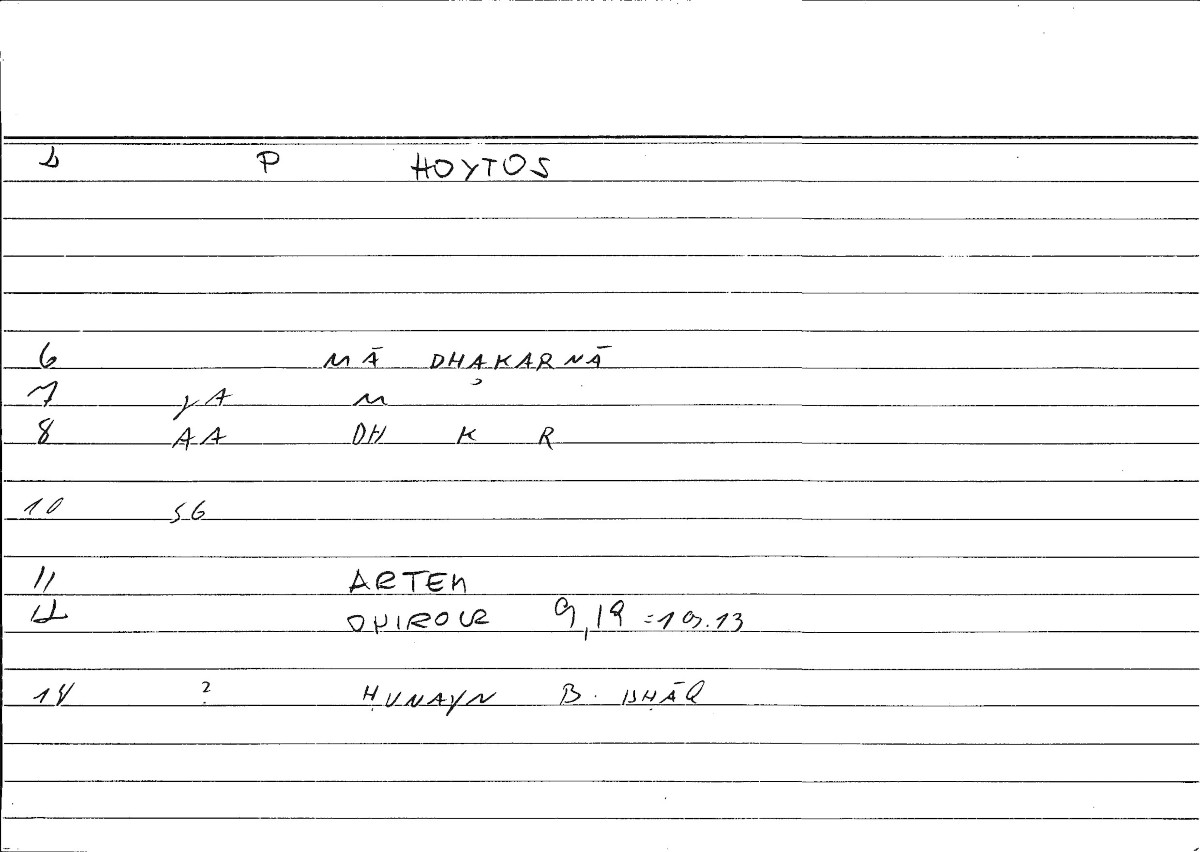 2 P HOYTOS
6 MĀ DHAKARNĀ
7 YA M
8 AA DH K R
10 SG
11 ARTEM
12 ONIROCR 9,19 =19.13
14 ? ḤUNAYN B. ISḤĀQ